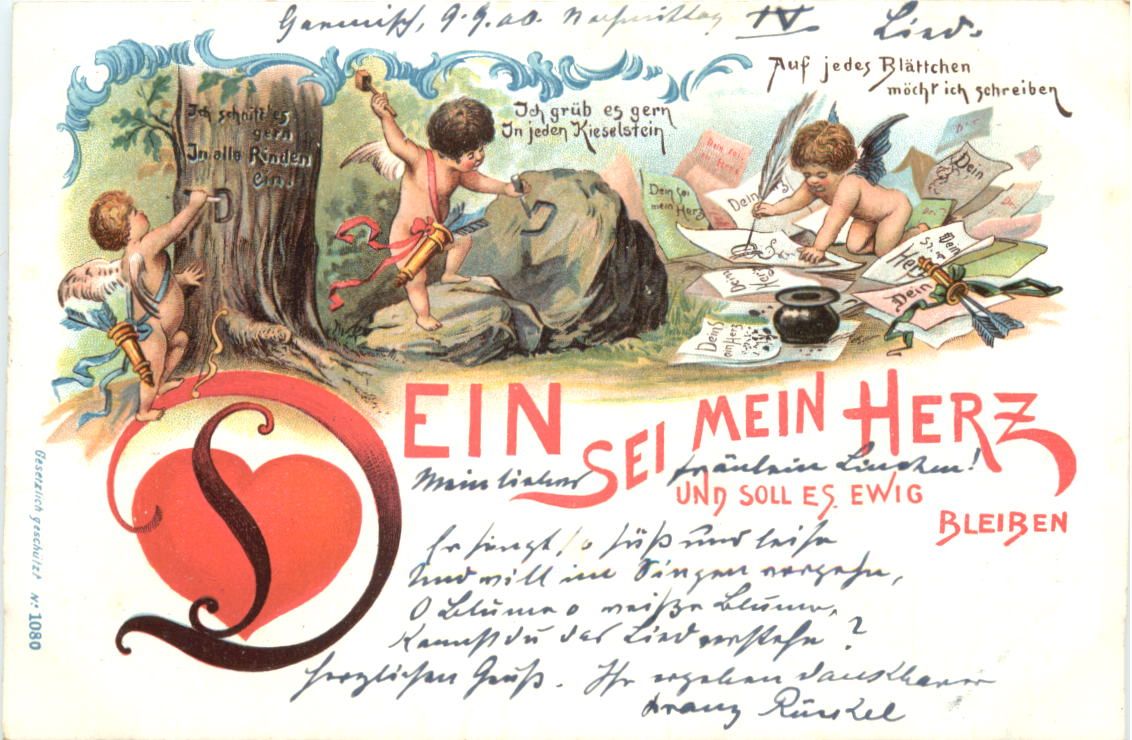 Garmisch, 9.9.00. Nachmittag IV. Lied.
Ich schnitt' es
gern
In alle Rinden
ein!
Ich grüb es gern
In jeden Kieselstein
Auf jedes Blättchen
möcht' ich schreiben
Dein sei
mein Herz
Dein sei
Dein
Dein
Dein
Herz
Dein
Herz
Dein
Dein
mein Herz
DEIN SEI MEIN HERZ
UND SOLL ES EWIG
BLEIBEN
Mein liebes Fräulein Linchen!
Er singt so süß und leise
Und will im Singen vergehn,
O Blume o weiße Blume,
Kannst du das Lied verstehn?
Herzlichen Gruß. Ihr ergeben dankbarer
Franz
Gesetzlich geschützt No 1080